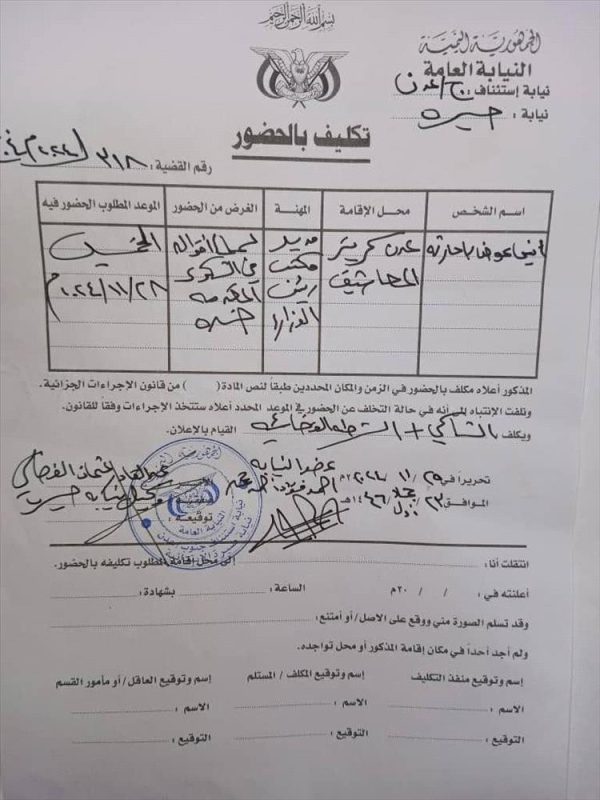 بسم الله الرحمن الرحيم
الجمهورية اليمنية
النيابة العامة
نيابة إستئناف: ج/عدن
نيابة: صيره
تكليف بالحضور
رقم القضية: ٣١٨ / ٢٠٢٤م
اسم الشخص
محل الإقامة
المهنة
الغرض من الحضور
الموعد المطلوب الحضور فيه
عوض باحارثه
عدن كريتر
المعاشيق
مدير
مكتب
رئيس
الوزراء
لسماع أقواله
في الشكوى
المقدمة
ضده
الخميس
٢٠٢٤/١١/٢٨م
المذكور أعلاه مكلف بالحضور في الزمن والمكان المحددين طبقاً لنص المادة ( ) من قانون الإجراءات الجزائية.
وتلفت الإنتباه إلى أنه في حالة التخلف عن الحضور في الموعد المحدد أعلاه ستتخذ الإجراءات وفقاً للقانون.
ويكلف الشاكي + الشرطه القضائيه القيام بالإعلان.
تحريراً في / ١١ / ٢٠٢٤م
الموافق / / ١٤٤٦هـ
عضو النيابه
توقيعه:
الجمهورية اليمنية
النيابة العامة
نيابة استئناف جنوب عدن
انتقلت أنا: إلى محل إقامة المطلوب تكليفه بالحضور.
أعلنته في: / / ٢٠م الساعة: بشهادة:
وقد تسلم الصورة مني ووقع على الاصل/ أو أمتنع:
ولم أجد أحداً في مكان إقامة المذكور أو محل تواجده.
إسم وتوقيع منفذ التكليف
إسم وتوقيع المكلف / المستلم
إسم وتوقيع العاقل/ أو مأمور القسم
الاسم:
الاسم:
الاسم:
التوقيع:
التوقيع:
التوقيع: